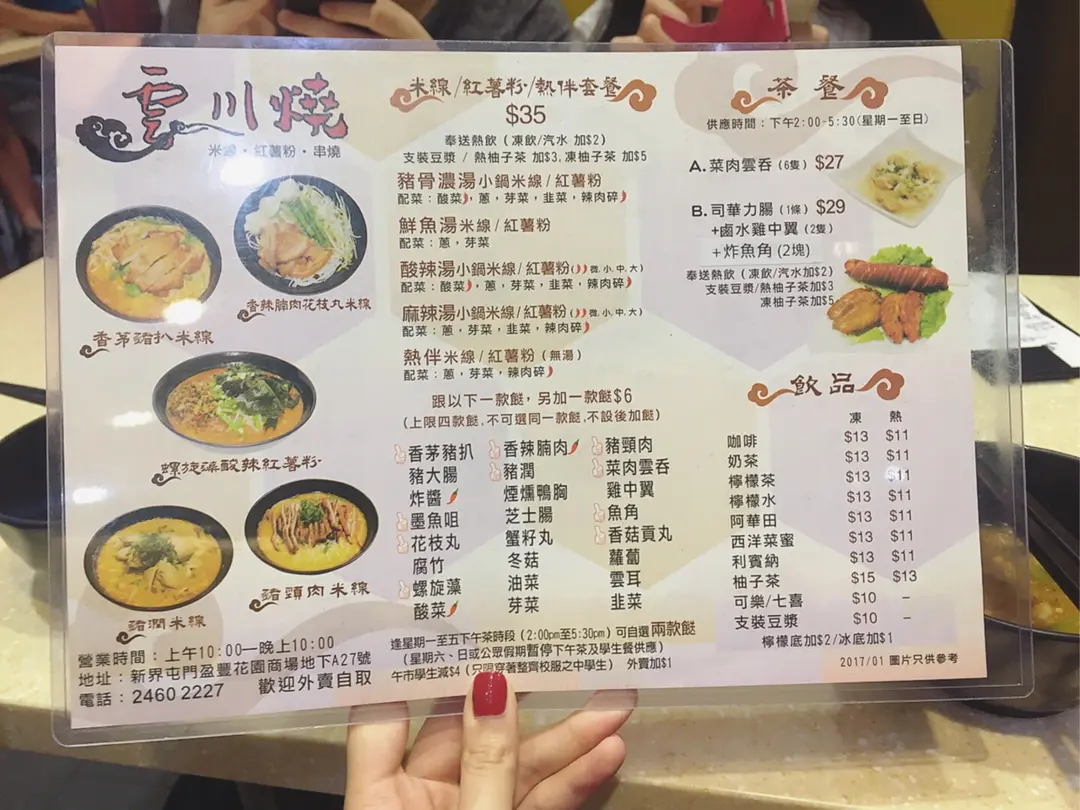 雲川燒
米線・紅薯粉・串燒
香茅豬扒米線
香辣腩肉花枝丸米線
螺旋藻酸辣紅薯粉
豬潤米線
豬頸肉米線
營業時間：上午10:00—晚上10:00
地址：新界屯門盈豐花園商場地下A27號
電話：2460 2227 歡迎外賣自取
米線/紅薯粉/熱伴套餐
$35
奉送熱飲（凍飲/汽水 加$2）
支裝豆漿 / 熱柚子茶 加$3,凍柚子茶 加$5
豬骨濃湯小鍋米線/紅薯粉
配菜：酸菜，蔥，芽菜，韭菜，辣肉碎
鮮魚湯米線/紅薯粉
配菜：蔥，芽菜
酸辣湯小鍋米線/紅薯粉(微.小.中.大)
配菜：酸菜，蔥，芽菜，韭菜，辣肉碎
麻辣湯小鍋米線/紅薯粉(微.小.中.大)
配菜：蔥，芽菜，韭菜，辣肉碎
熱伴米線/紅薯粉（無湯）
配菜：蔥，芽菜，辣肉碎
跟以下一款餸，另加一款餸$6
(上限四款餸,不可選同一款餸,不設後加餸)
香茅豬扒 香辣腩肉 豬頸肉
豬大腸 豬潤 菜肉雲吞
炸醬 煙燻鴨胸 雞中翼
墨魚咀 芝士腸 魚角
花枝丸 蟹籽丸 香菇貢丸
腐竹 冬菇 蘿蔔
螺旋藻 油菜 雲耳
酸菜 芽菜 韭菜
逢星期一至五下午茶時段（2:00pm至5:30pm）可自選兩款餸
（星期六、日或公眾假期暫停下午茶及學生餐供應）
午市學生減$4（只限穿著整齊校服之中學生） 外賣加$1
茶餐
供應時間：下午2:00-5:30(星期一至日)
A.菜肉雲吞（6隻）$27
B.司華力腸（1條）$29
+鹵水雞中翼（2隻）
+炸魚角 (2塊)
奉送熱飲（凍飲/汽水加$2）
支裝豆漿/熱柚子茶加$3
凍柚子茶加$5
飲品
凍 熱
咖啡 $13 $11
奶茶 $13 $11
檸檬茶 $13 $11
檸檬水 $13 $11
阿華田 $13 $11
西洋菜蜜 $13 $11
利賓納 $13 $11
柚子茶 $15 $13
可樂/七喜 $10 –
支裝豆漿 $10 –
檸檬底加$2/冰底加$1
2017/01 圖片只供參考